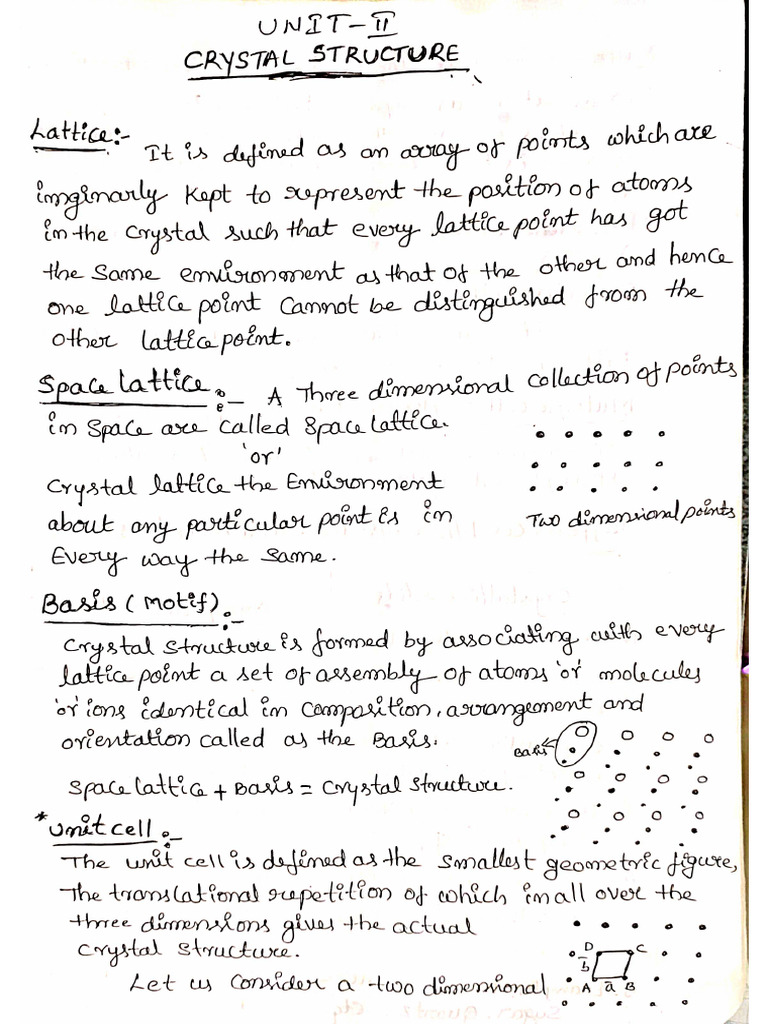 UNIT-II
CRYSTAL STRUCTURE
Lattice:- It is defined as an array of points which are
imginarly kept to represent the position of atoms
in the crystal such that every lattice point has got
the same environment as that of the other and hence
one lattice point cannot be distinguished from the
other lattice point.
Space lattice:- A Three dimensional collection of points
in space are called space lattice.
'or'
Crystal lattice the Environment
about any particular point is in
Every way the same.
Two dimensional points
Basis (Motif):-
Crystal structure is formed by associating with every
lattice point a set of assembly of atoms 'or' molecules
'or' ions identical in composition, arrangement and
orientation called as the Basis.
Basis
Space lattice + Basis = Crystal structure.
* Unit cell:-
The unit cell is defined as the smallest geometric figure,
the translational repetition of which in all over the
three dimensions gives the actual
crystal structure.
D C
b
A a B
Let us consider a two dimensional